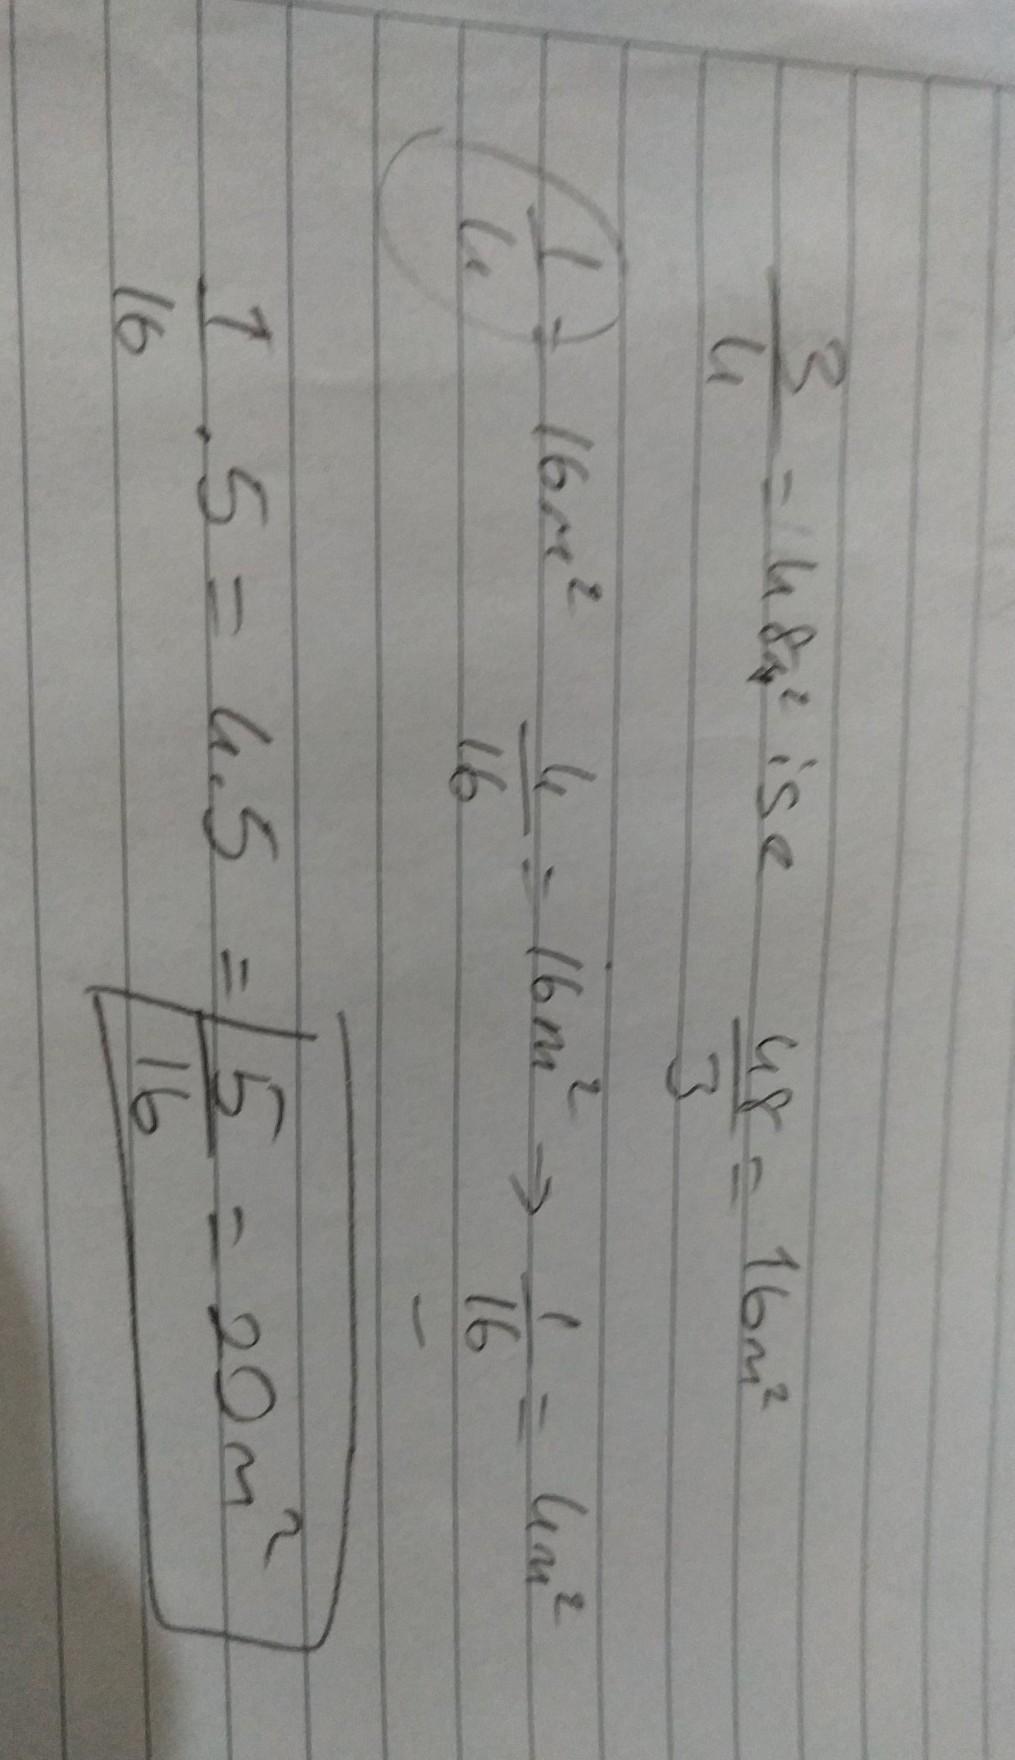 3/4 = 48m² ise 48/3 = 16m²
1/4 = 16m² 4/16 = 16m² → 1/16 = 4m²
1/16 . 5 = 4.5 = 5/16 = 20m²